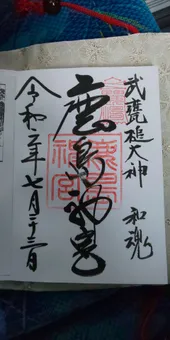 武甕槌大神 和魂
鹿島神宮
鹿島
神宮
令和三年七月二十三日